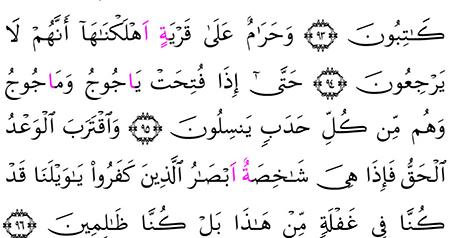 كَـٰتِبُونَ ٩٣ وَحَرَٰمٌ عَلَىٰ قَرْيَةٍ اَهْلَكْنَـٰهَآ أَنَّهُمْ لَا
يَرْجِعُونَ ٩٤ حَتَّىٰٓ إِذَا فُتِحَتْ يَاجُوجُ وَمَاجُوجُ
وَهُم مِّن كُلِّ حَدَبٖ يَنسِلُونَ ٩٥ وَٱقْتَرَبَ ٱلْوَعْدُ
ٱلْحَقُّ فَإِذَا هِىَ شَـٰخِصَةٌ اَبْصَـٰرُ ٱلَّذِينَ كَفَرُواْ يَـٰوَيْلَنَا قَدْ
كُنَّا فِى غَفْلَةٖ مِّنْ هَـٰذَا بَلْ كُنَّا ظَـٰلِمِينَ ٩٦